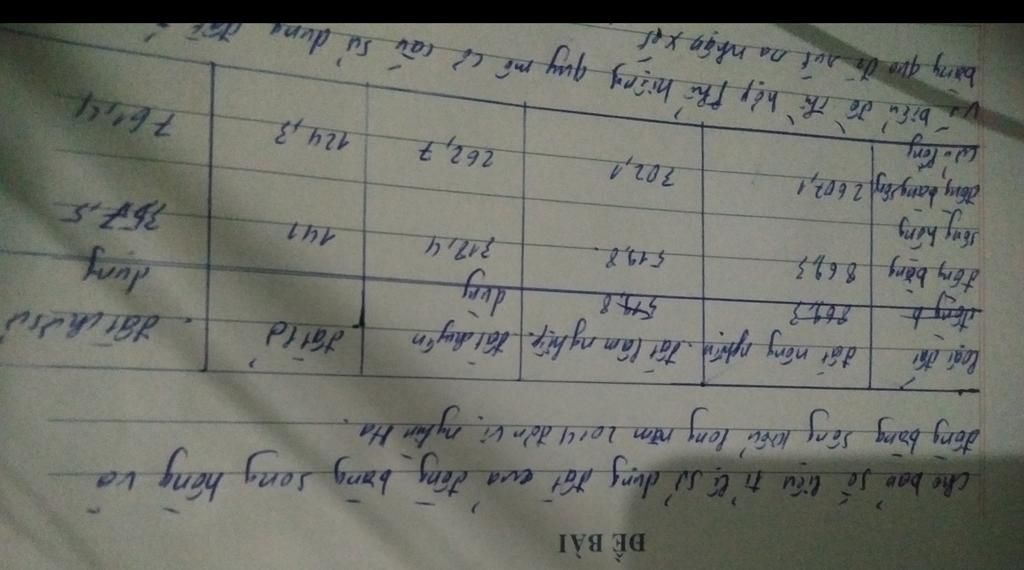 ĐỀ BÀI
Cho bản số liệu tỉ lệ sử dụng đất của đồng bằng sông hồng và
đồng bằng sông cửu long năm 2014 đơn vị nghìn Ha.
loại đất đất nông nghiệp đất lâm nghiệp. đất chuyên dùng đất ở đất chưa sử dụng
đồng b 769,3 519,8
đồng bằng sông hồng 769,3 519,8. 318,4 141 357,5
đồng bằng sông cửu long 2607,1 302,1 262,7 124,3 761,4
Vẽ biểu đồ thể hiện quy mô cơ cấu sử dụng đất
bảng qua đó rút ra nhận xét